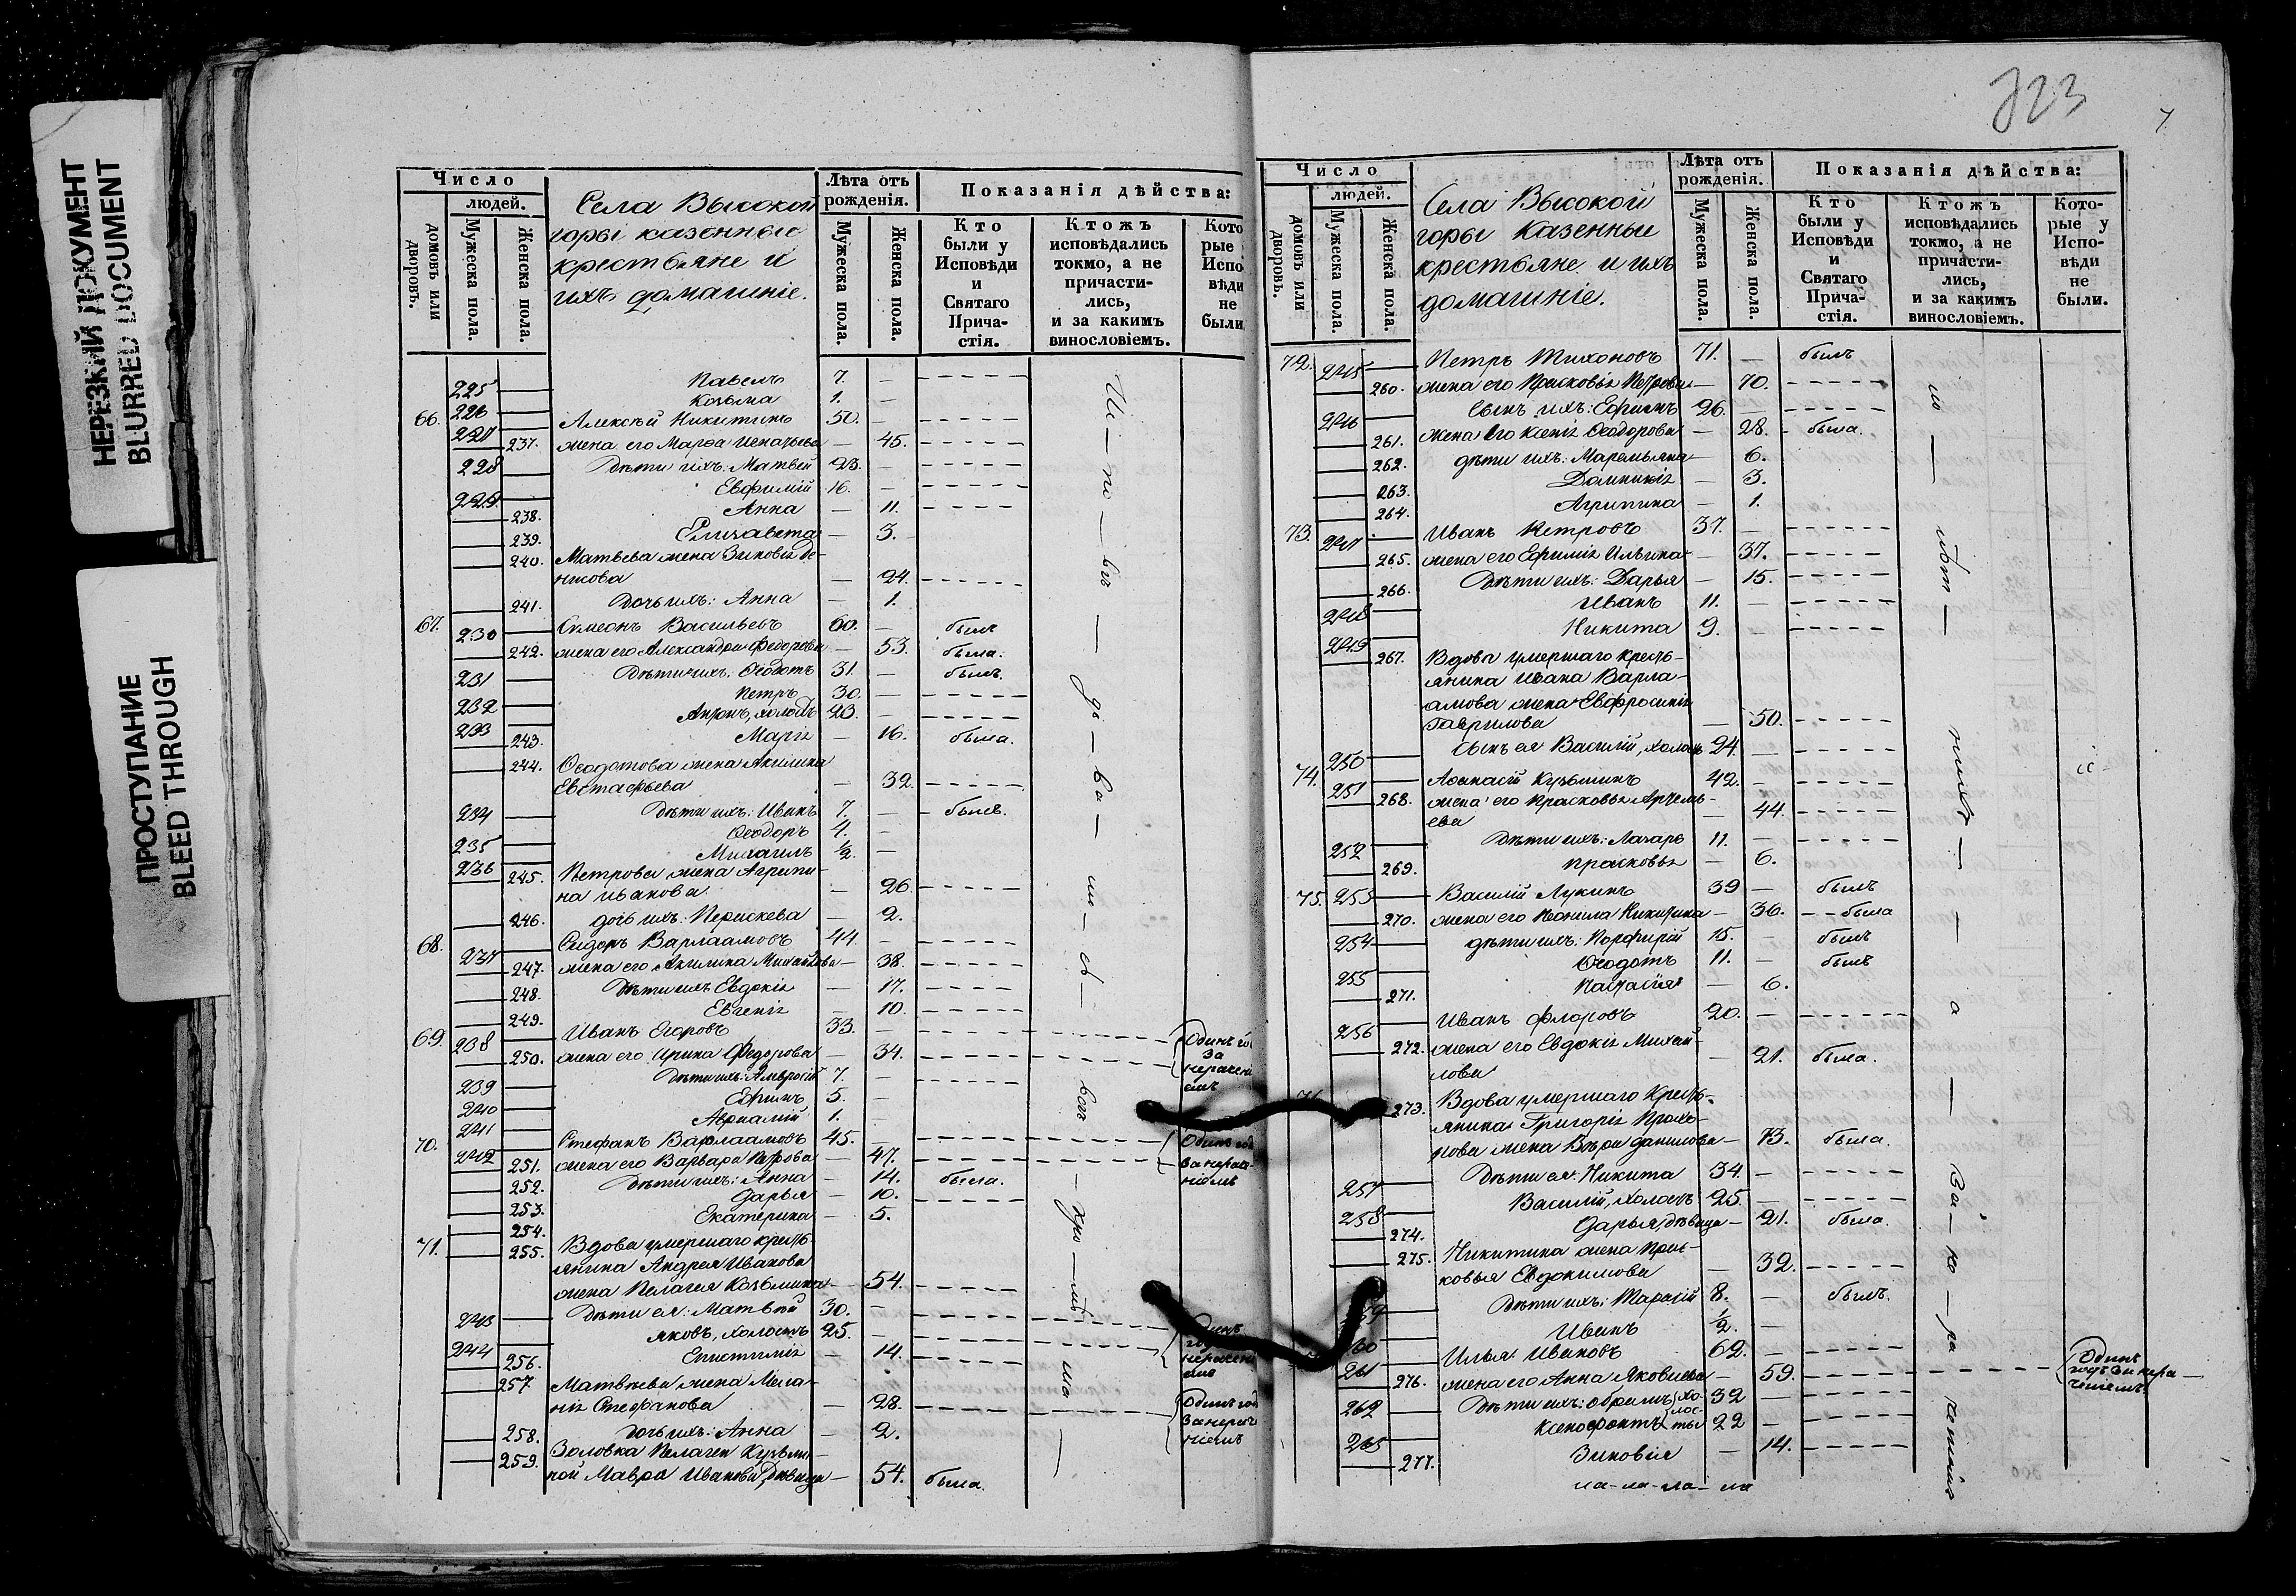 НЕРЕЗКИЙ ДОКУМЕНТ
BLURRED DOCUMENT
ПРОСТУПАНИЕ
BLEED THROUGH
Число
людей.
домовъ или дворовъ.
Мужеска пола.
Женска пола.
Села Высокой
горы казенные
крестьяне и
ихъ домашніе.
Лѣта отъ рожденія.
Мужеска пола.
Женска пола.
Показанія дѣйства:
Кто были у Исповѣди и Святаго Прича-стія.
Ктожъ исповѣдались токмо, а не причасти-лись, и за какимъ винословіемъ.
Кото рые Испо вѣди не были
225 Павелъ 7. —
226 Козьма 1. —
66. 227 Алексѣй Никитинъ 50. —
237. жена его Марѳа Игнатьева — 45.
228 Дѣти ихъ: Матвей 23. —
229 Евфимій 16. —
238. Анна — 11.
239. Елизавета — 3.
240. Матвѣева жена Зиновія Де-
нисова — 24.
241. Дочь ихъ: Анна — 1.
67. 230 Симеонъ Васильевъ 60. — былъ
242. жена его Александра Федорова — 53. была.
231 Дѣти ихъ: Ѳеодотъ 31. — былъ.
232 Петръ 30. —
233 Антонъ, холостъ 23. —
243. Марія — 16. была.
244. Ѳеодотова жена Акилина
Евстафьева — 32.
234 Дѣти ихъ: Иванъ 7. — былъ.
235 Ѳеодоръ 4. —
236 Михаилъ ½. —
245. Петрова жена Агрипи-
на Иванова — 26.
246. дочь ихъ: Перискева — 2.
68. 237 Сидоръ Варлаамовъ 44. —
247. жена его Акилина Михайлова — 38.
248. Дѣти ихъ Евдокія — 17.
249. Евгенія — 10.
69. 238 Иванъ Егоровъ 33. —
250. жена его Ирина Федорова — 34.
Одинъ го
за
нерачені
емъ
239 Дѣти ихъ: Амвросій 7. —
240 Ефимъ 5. —
241 1. —
70. 242 Стефанъ Варлаамовъ 45. —
251. жена его Варвара Петрова — 47.
Одинъ год
за нерач
ніемъ
252. Дѣти ихъ: Анна — 14. была.
253. Дарья — 10.
254. Екатерина — 5.
71. 255. Вдова умершаго кресть-
янина Андрея Иванова
жена Пелагея Козьмина — 54.
243 Дѣти ея: Матвѣй 30. —
244 Яковъ, холостъ 25. —
256. Епистимія — 14.
257. Матвѣева жена Мела-
нія Стефанова — 28.
Одинъ год
за нерач
ніемъ
258. Дочь ихъ: Анна — 2.
259. Золовка Пелагеи Кузьми-
ной Мавра Иванова, дѣвица — 54. была.
323
7
Число
людей.
домовъ или дворовъ.
Мужеска пола.
Женска пола.
Села Высокой
горы Казенные
крестьяне и ихъ
домашніе.
Лѣта отъ рожденія.
Мужеска пола.
Женска пола.
Показанія дѣйства:
Кто были у Исповѣди и Святаго Прича-стія.
Ктожъ исповѣдались токмо, а не причасти-лись, и за какимъ винословіемъ.
Кото-рые у Испо-вѣди не были.
72. 245 Петръ Тихоновъ 71. — былъ
260. жена его Прасковья Петрова — 70.
246 Сынъ ихъ: Ефимъ 26. —
261. жена его Ксенія Ѳеодорова — 28. была.
262. дѣти ихъ: Маремьяна — 6.
263. Домникія — 3.
264. Агрипина — 1.
73. 247 Иванъ Петровъ 37. —
265. жена его Ефимія Ильина — 37.
266. Дѣти ихъ: Дарья — 15.
248 Иванъ 11. —
249 Никита 9. —
267. Вдова умершаго кресть-
янина Ивана Варла-
амова жена Евфросинія
Гаврилова — 50.
250 Сынъ ея Василій, холостъ 24. —
74. 251 Аѳанасій Кузьминъ 42. —
268. жена его Прасковья Артемь-
ева — 44.
252 Дѣти ихъ: Лазарь 11. —
269. Прасковья — 6.
75. 253 Василій Лукинъ 39 — былъ
270. жена его Неонила Никитина — 36. была
254 дѣти ихъ: Порфирій 15. — былъ
255 Ѳеодотъ 11. — былъ
271. — 6.
256 Иванъ Флоровъ 20. —
272. жена его Евдокія Михай-
лова — 21. была.
273. Вдова умершаго Кресть-
янина Григорія Прохо-
рова жена Вѣра Данилова — 73. была.
257 Дѣти ея: Никита 34. —
258 Василій, холостъ 25. —
274. Дарья, дѣвица — 21. была.
275. Никитина жена Прас-
ковья Евдокимова — 32.
Дѣти ихъ: Тарасій 8. — былъ.
Иванъ ½. —
261 Илья Ивановъ 62. —
276. жена его Анна Яковлева — 59.
Одинъ
годъ за нера
ченіемъ
262 Дѣти ихъ: 32 —
Ксенофонтъ 22 —
277. Зиновія — 14.